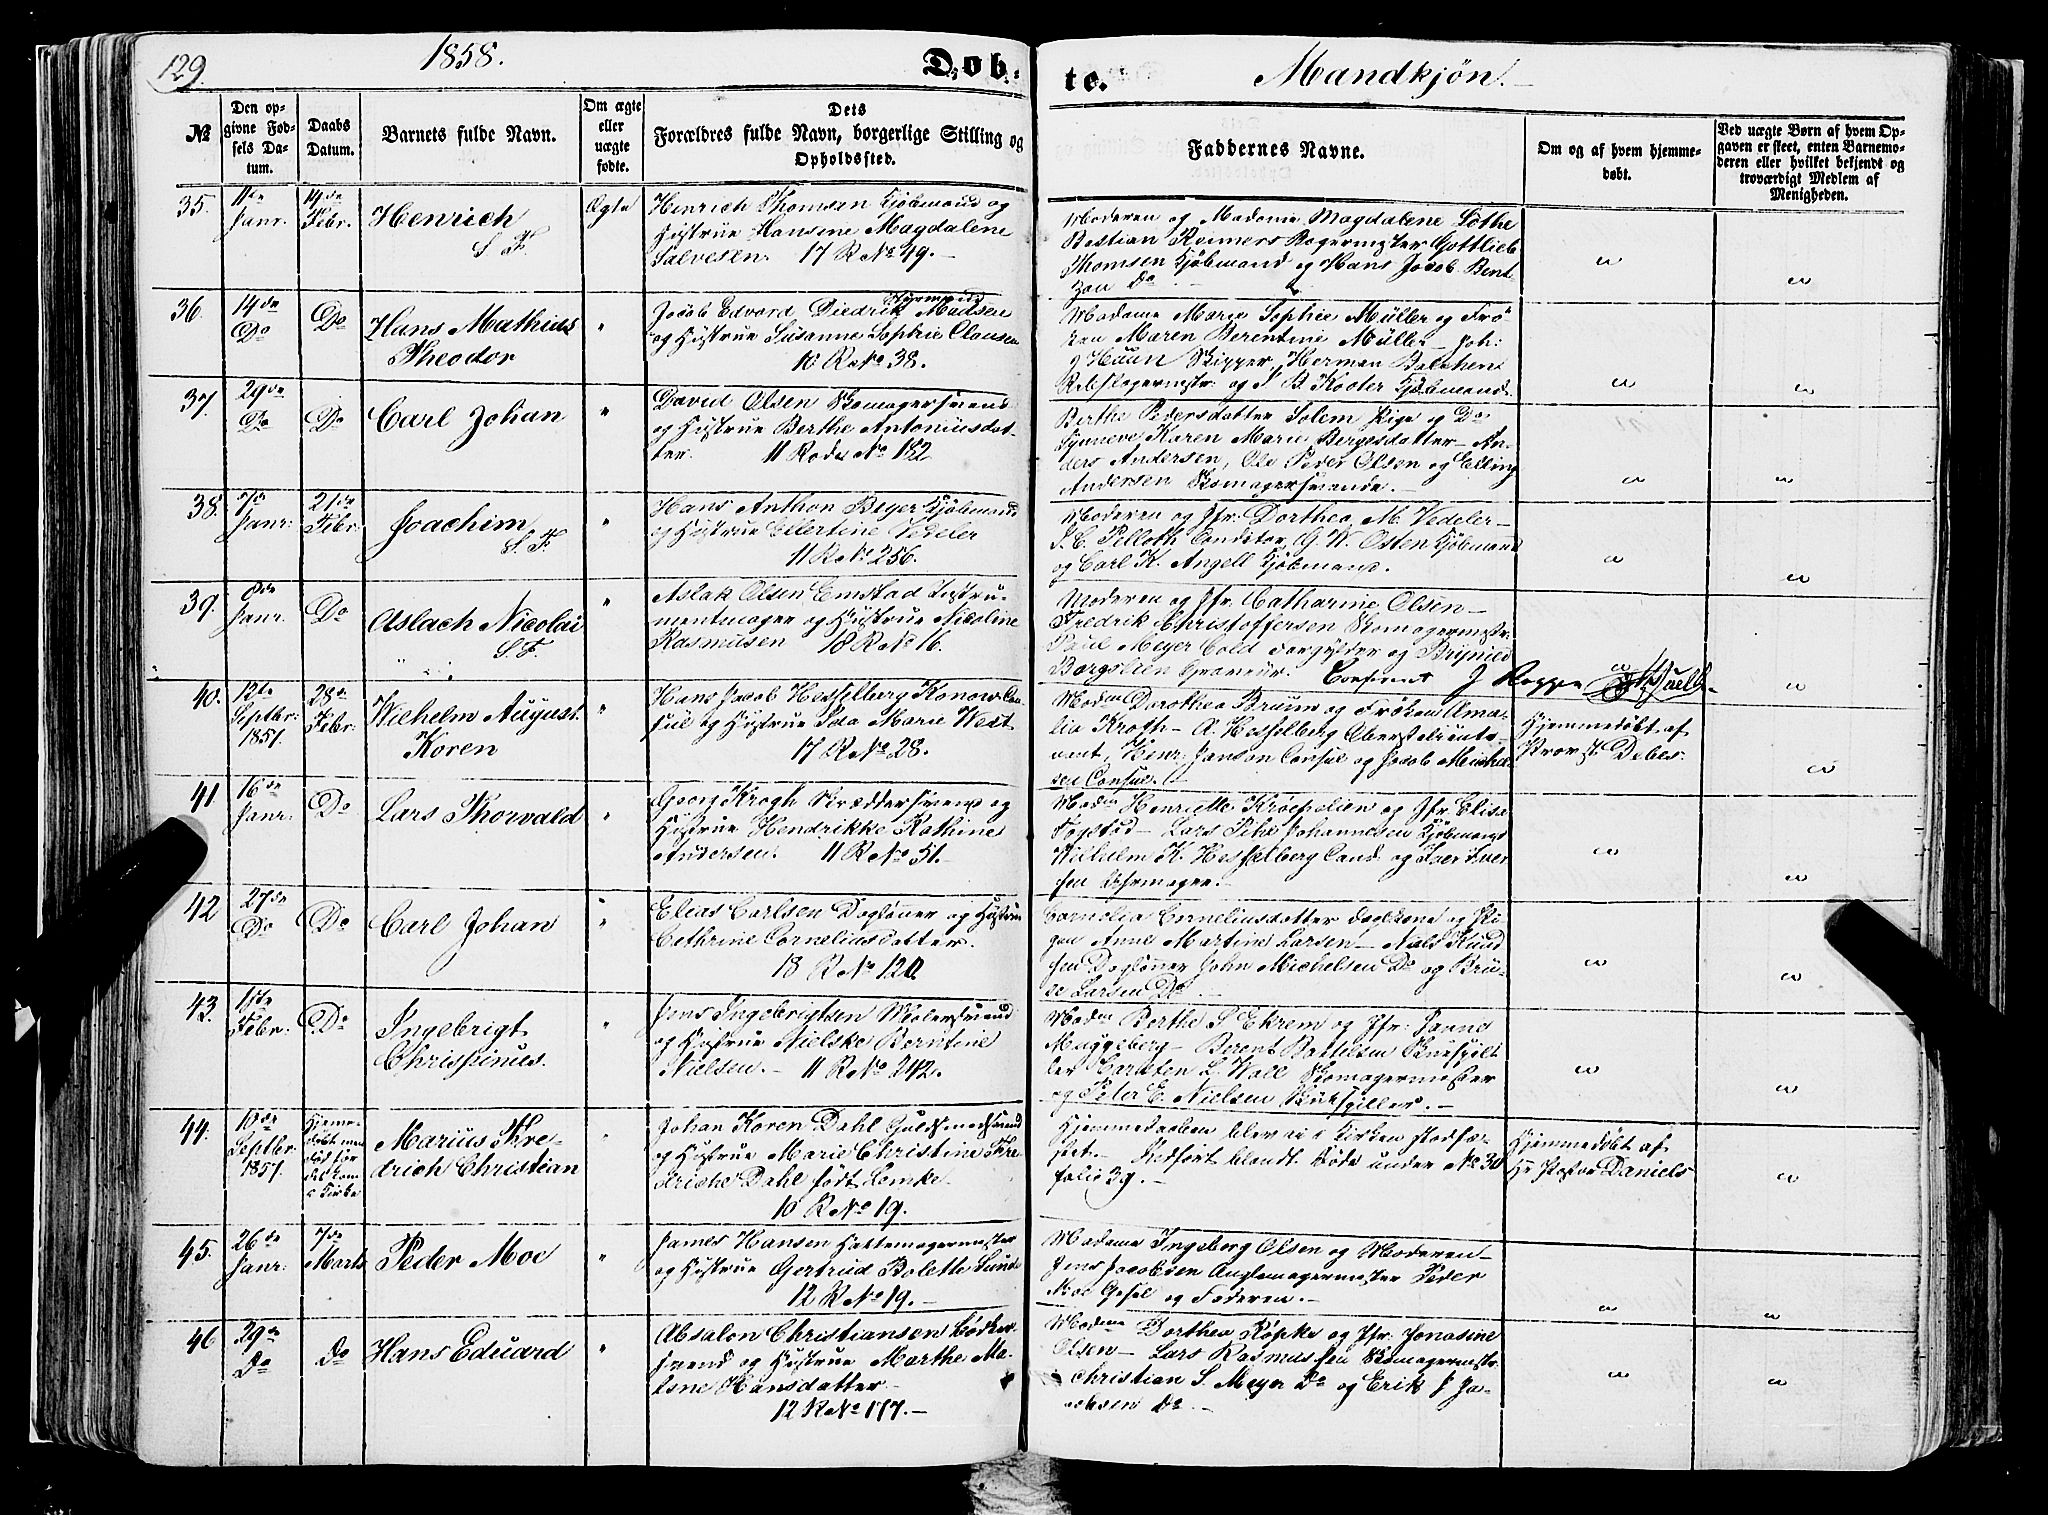 129.
1858.
Døb-
te.
Mandkjøn.
№
Den op-
givne Fød-
sels Da-
tum.
Daabs
Datum.
Barnets fulde Navn.
Om ægte
eller
uægte
fødte.
Dets
Forældres fulde Navn, borgerlige Stilling og
Opholdssted.
Faddernes Navne.
Om og af hvem hjemme-
døbt.
Ved uægte Børn af hvem Op-
gaven er skeet, enten Barnemo-
deren eller hvilket bekjendt og
troværdigt Medlem af
Menigheden.
35.
Janr.
14de
Febr.
Henrich
S. F.
Ægte
Henrich Thomsen Kjøbmand og
Hustrue Hansine Magdalene
Salvesen. 17 R No 49.
Moderen og Madame Magdalene Lothe
Bastian Reimers Bagermester Gottlieb
Thomsen Kjøbmand og Hans Jacob Bent-
zon Do
36.
14de
Do
Do
Hans Mathias
Theodor
"
Jacob Edvard Diedrik Madsen
Styrmand
og Hustrue Susanne Sophie Clausen
10 R No 38.
Madame Marie Sophie Müller og Frø-
ken Maren Berentine Müller – Joh:
J Huun Skipper, Herman Balchen
Rebslagermstr: og J B Kooter Kjøbmand
37.
29de
Do
Do
Carl Johan
"
David Olsen Skomagersvend
og Hustrue Berthe Antoniusdat-
ter. 11 Rode No 182
Berthe Pedersdatter Solem Pige og Do
Synneve Karen Marie Bergesdatter – An-
ders Andersen, Ole Peder Olsen og Elling
Andersen Skomagersvende. –
38.
7de
Janr:
21de
Febr:
Joachim
S. F.
"
Hans Anthon Beyer Kjøbmand
og Hustrue Ellertine Vedeler
11 R No 256.
Moderen og Jfr: Dorthea M. Vedeler –
J. C. Pilloth Conditor, G. W. Osten Kjøbmand
og Carl K. Angell Kjøbmand.
39.
8de
Janr.
Do
Aslach Nicolai
S. F.
"
Aslak Olsen Emstad Instru-
mentmager og Hustrue Nicoline
Rasmusen 18 R No 16.
Moderen og Jfr. Catharine Olsen –
Fredrik Christoffersen Skomagermstr.
Paul Meyer Cold Forgylder og Brynild
Bargslien Graveur.
40.
12te
Septbr:
1857.
28de
Febr:
Wilhelm August
Koren
"
Hans Jacob Hesselberg Konow Con-
sul og Hustrue Ida Marie West
17 R No 28.
Madm Dorothea Bruun og Frøken Ama-
lia Kroth – A. Hesselberg Oberstlieute-
nant, Henr: Janson Consul og Jacob Michel-
sen Consul.
Hjemmedøbt af
Provst Debes.
41
16de
Janr:
Do
Lars Thorvald
"
Georg Krogh Skræddersvend og
Hustrue Hendrikke Kathine
Andersen. 11 R No 51. –
Madm Henriette Krøepelien og Jfr. Elisa
Fogstad – Lars Pihl Johannesen Kjøbmand
Wilhelm K. Hesselberg Cand. og Iver Iver-
sen Uhrmager. –
42
27de
Do
Do
Carl Johan
"
Elias Carlsen Dagløner og Hustrue
Cethrine Corneliusdatter.
18 R No 120
Cornelia Corneliusdatter Daglkone og Pi-
gen Anne Martine Larsen – Niels Knud-
sen Dagløner John Michelsen Do og Bru-
se Larsen Do
43.
Febr:
Do
Ingebrigt
Chrispinus.
"
Jens Ingebrigtsen Malersvend
og Hustrue Nielske Berntine
Nielsen. – 11 R No 242.
Madm Berthe S Ekrem og Jfr: Janna
Maggeberg – Berent Bertelsen Skuespil-
ler Carsten L. Wall Skomagermester
og Peter E. Nielsen Skuespiller. –
44.
10de
Septbr:
1857.
Hjeme-
døbt men
død før
det kom
i Kirke
Marius Fre-
drich Christian
"
Johan Koren Dahl Guldsmedsvend
og Hustrue Marie Christine Fre-
driche Dahl født Lemke.
10 R No 19.
Hjemmedaaben blev ei i Kirken stadfæ-
stet. – Indført blandt Døde under No 30
folio 39. –
Hjemmedøbt af
Hr Pastor Daniels
45.
26de
Janr:
7de
Marts
Peder Moe
"
James Hansen Hattemagermester
og Hustrue Gertrud Boleth Lunde
12 R No 19. –
Madame Ingeberg Olsen og Moderen –
Jens Jacobsen Anglemagermester Peder
Moe Gesel og Faderen. –
46
29de
Do
Do
Hans Eduard
"
Absalon Christiansen Bødker-
svend og Hustrue Marthe Ma-
lene Hansdatter –
12 R No 177. –
Madm Dorthea Køpke og Jfr: Jonasine
Olsen – Lars Rasmussen Skomagermstr.
Christian S. Meyer Do og Erik J Ja-
cobsen Do. –